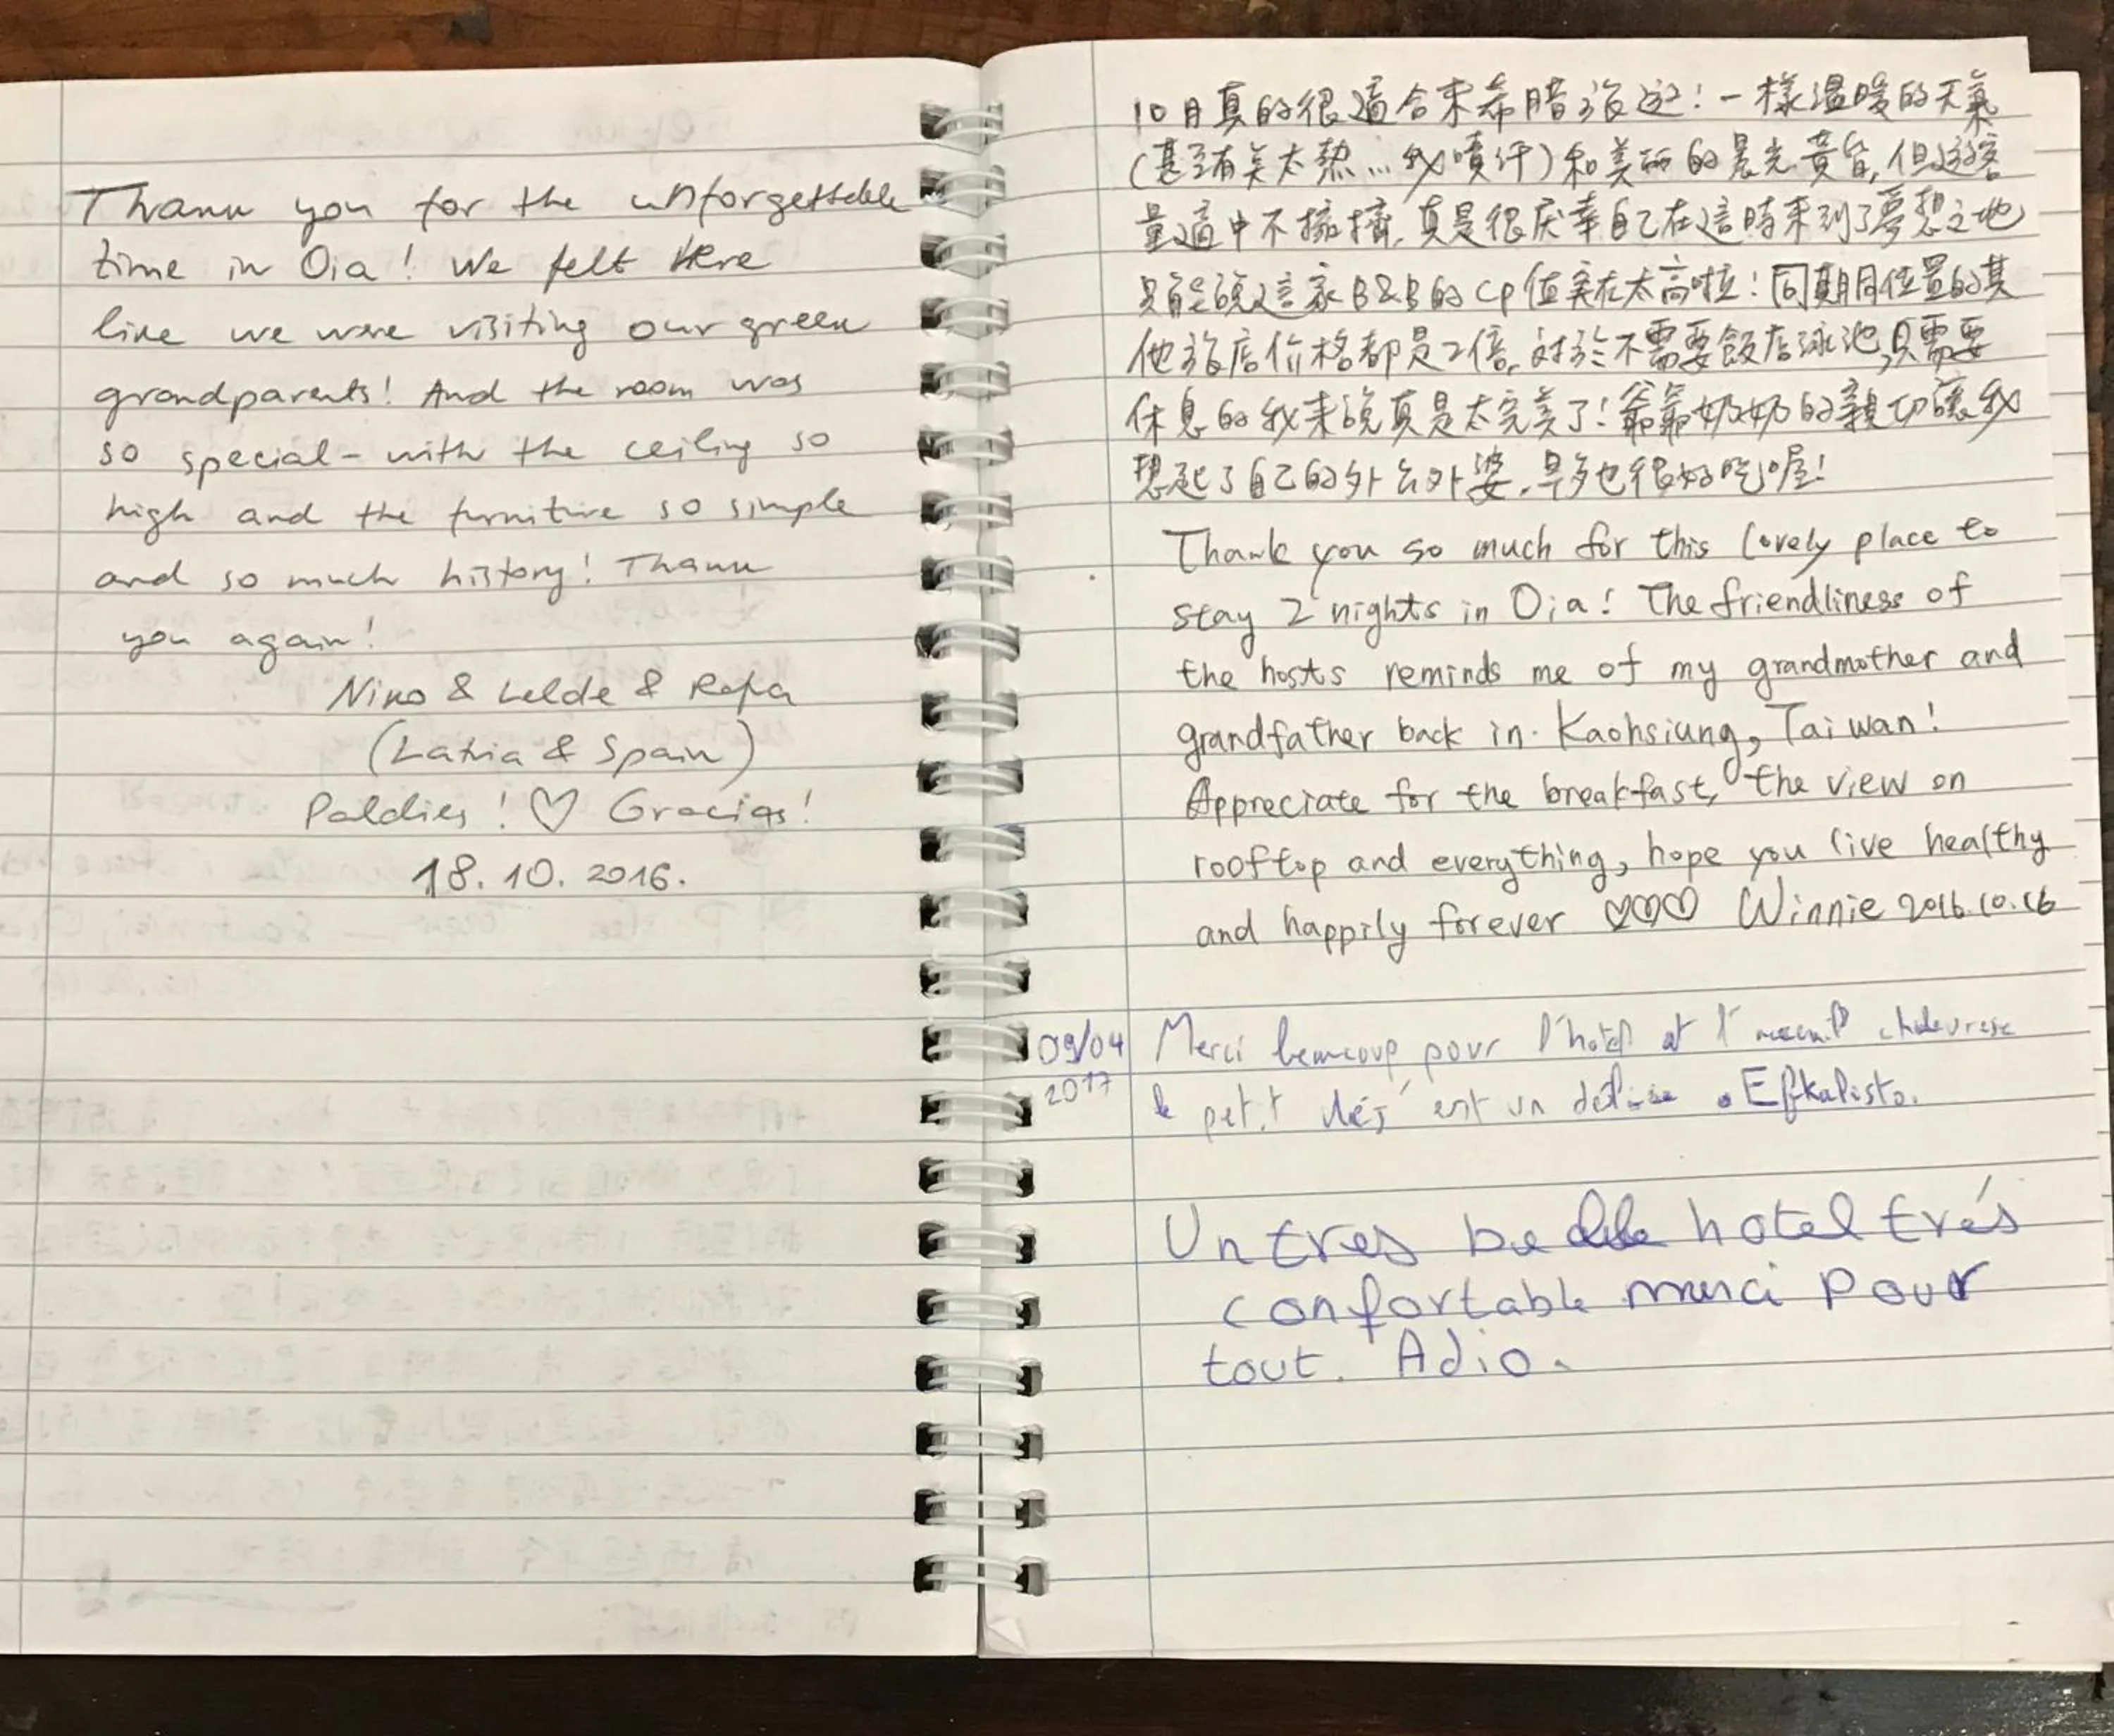 Thank you for the unforgettable
time in Oia! We felt here
like we were visiting our green
grandparents! And the room was
so special - with the ceiling so
high and the furniture so simple
and so much history! Thank
you again!
Niko & Lelde & Rafa
(Latvia & Spain)
Paldies! ♡ Gracias!
18.10.2016.
10月真的很適合來希腊旅遊!一樣溫暖的天氣
(甚至有美太熱...我噴汗)和美丽的晨光黄昏,但遊客
量適中不擁擠,真是很庆幸自己在這時來到了夢想之地
只能說這家B&B的CP值实在太高啦!同期同位置的其
他旅店价格都是2倍,对於不需要飯店泳池,只需要
休息的我来說真是太完美了!爺爺奶奶的親切讓我
想起了自己的外公外婆,早歺也很好吃喔!
Thank you so much for this lovely place to
stay 2 nights in Oia! The friendliness of
the hosts reminds me of my grandmother and
grandfather back in Kaohsiung, Taiwan!
Appreciate for the breakfast, the view on
rooftop and everything, hope you live healthy
and happily forever ♡♡♡ Winnie 2016.10.16
09/04
2017
Merci beaucoup pour l'hotel et l'accueil chaleurese
le petit déj est un délice. Efkalisto.
Un tres be lle hotel trés
confortable merci pour
tout. Adio.